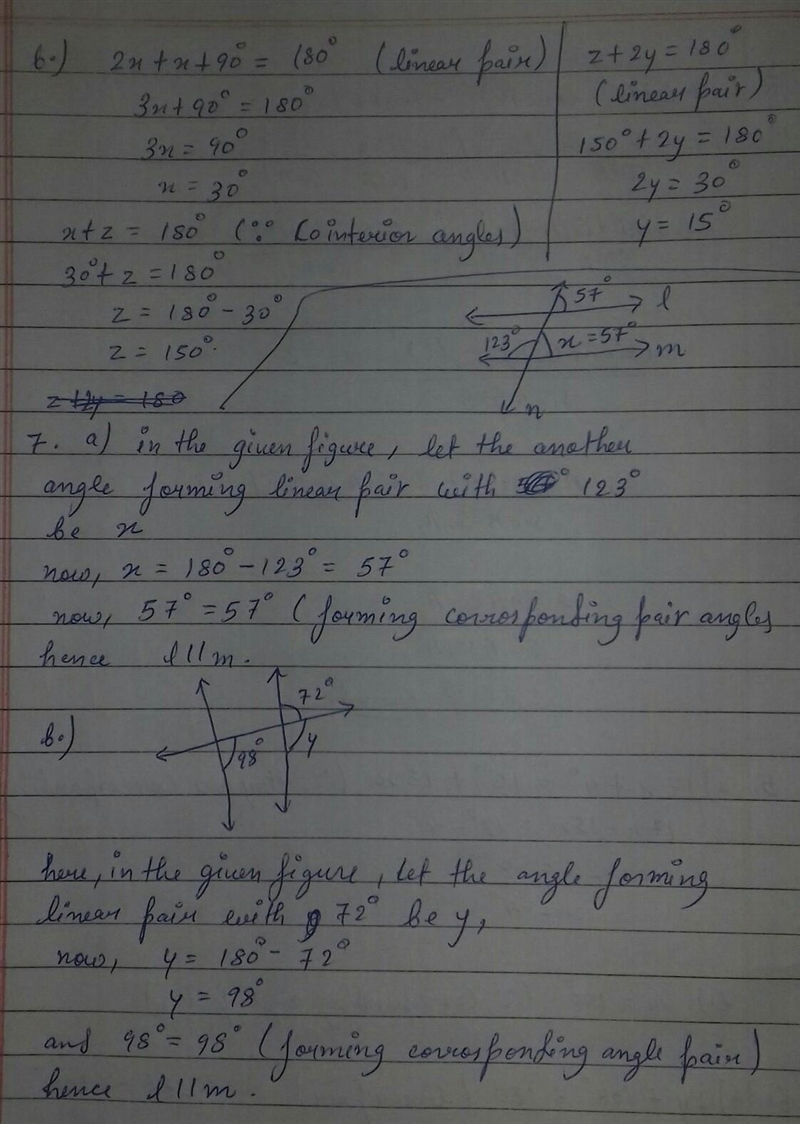 6.) 2x + x + 90° = 180° (linear pair)
3x + 90° = 180°
3x = 90°
x = 30°
x + z = 180° (∵ Cointerior angles)
30° + z = 180°
z = 180° - 30°
z = 150°.
z + 2y = 180
z + 2y = 180°
(linear pair)
150° + 2y = 180°
2y = 30°
y = 15°
57° l
123° x = 57° m
n
7. a) in the given figure, let the another
angle forming linear pair with 123°
be x
now, x = 180° - 123° = 57°
now, 57° = 57° (forming corrosponding pair angles
hence l || m.
b.)
72°
98° y
here, in the given figure, let the angle forming
linear pair with 72° be y,
now, y = 180° - 72°
y = 98°
and 98° = 98° (forming corrosponding angle pair)
hence l || m.